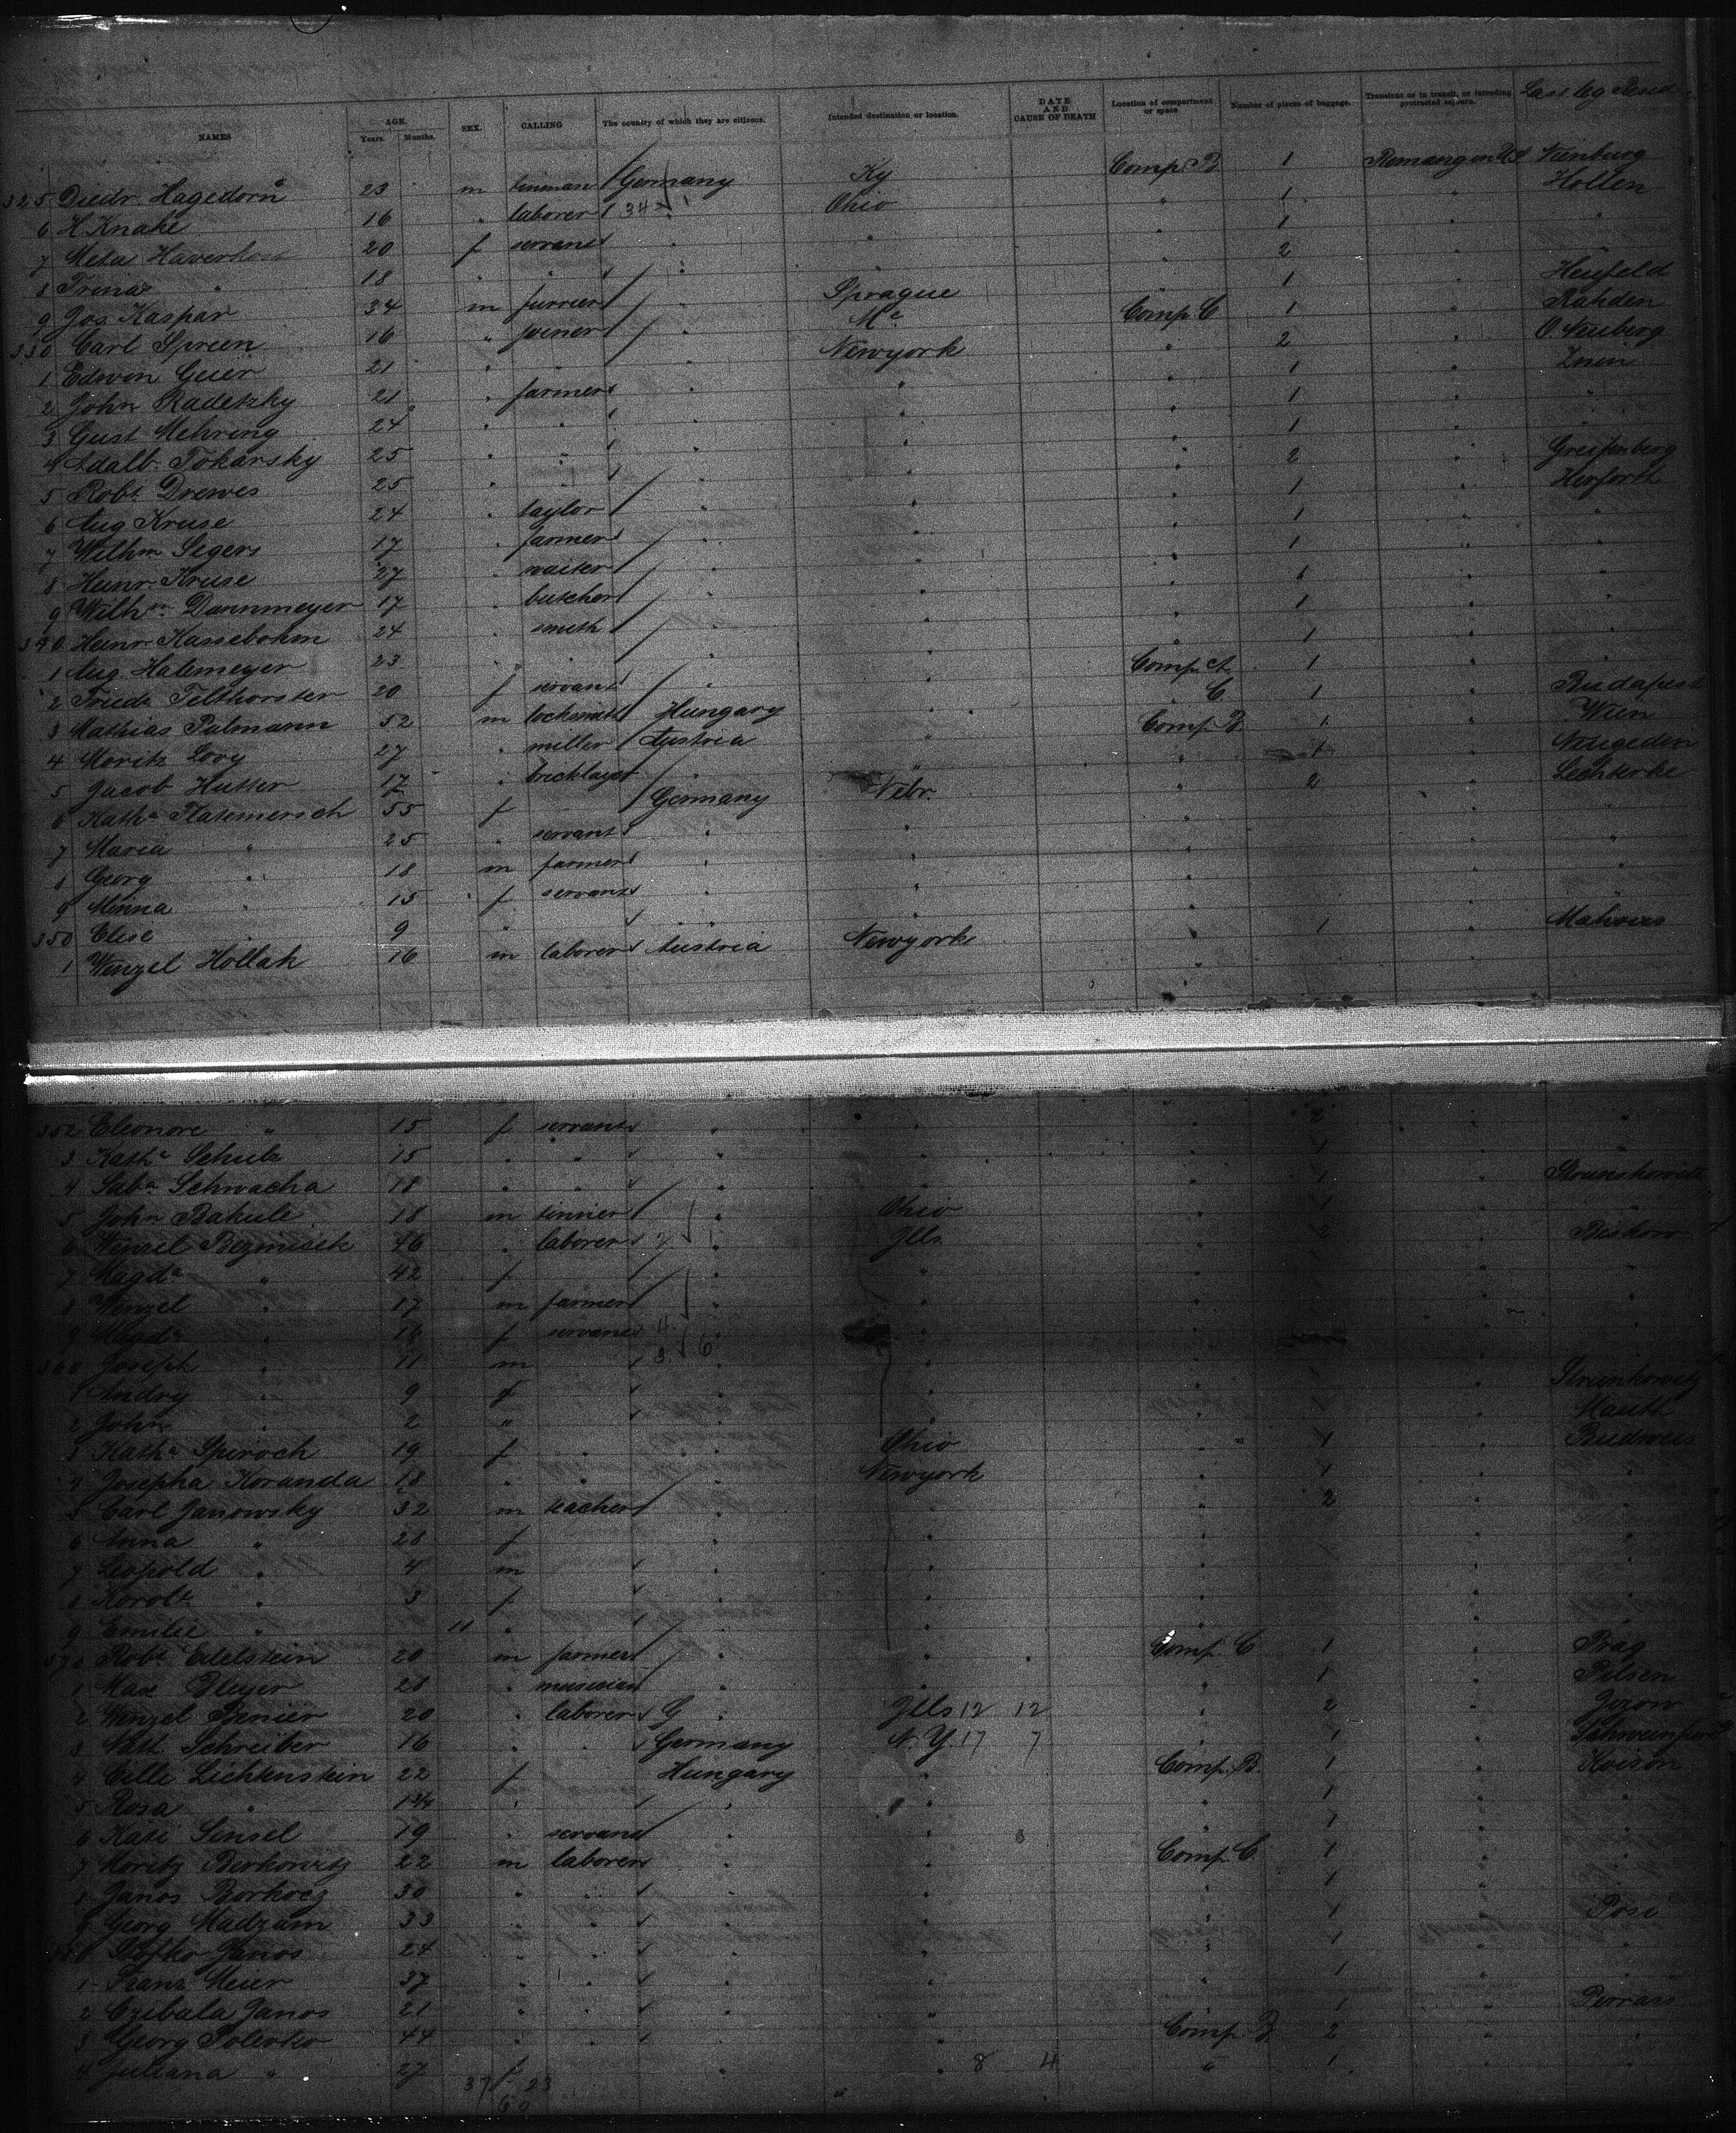 NAMES AGE. Years. Months. SEX. CALLING The country of which they are citizens. Intended destination or location. DATE AND CAUSE OF DEATH Location of compartment or space. Number of pieces of baggage. Transient or in transit, or intending protracted sojourn. Last leg Resid
325 Diedr. Hagedorn 23 m tinman Germany Ky Comp. B. 1 Nienburg
6 H. Knake 16 " laborer 34 Ohio " 1 " Hollen
7 Meta Haverkost 20 f servant " " " 1 " "
8 Trina " 18 " " " " " 2 "
9 Jos. Kaspar 34 m furrier " Sprague 1 " Heufeld
330 Carl Spreen 16 " joiner " Comp. C 1 " Rahden
1 Edwin Geier 21 " " " Newyork " 2 " O. Neuberg
2 John Radetzky 21 " farmer " " " 1 " Znin
3 Gust Mehring 24 " " " " " 1 " "
4 Adalb. Tokarsky 25 " " " " " 1 "
5 Robt. Drewes 25 " " " " " 2 " Greifenberg
6 Aug Kruse 24 " taylor " " " 1 " Herforth
7 Wilhm Segers 17 " farmer " " " 1 " "
8 Heinr. Kruse 27 " waiter " " " 1 " "
9 Wilhm Dannmeyer 17 " butcher " " " 1 " "
340 Heinr. Kassebohm 24 " smith " " " 1 " "
1 Aug. Halemeyer 23 " " " " 1 " "
2 Friedr. Telthorster 20 f servant " " Comp. A 1 " "
3 Mathias Palmann 52 m locksmith Hungary " C. 1 " Budapest
4 Moritz Lovy 27 " miller Austria " Comp. B. 1 " Wien
5 Jacob Hutter 17 " bricklayer " " " 1
6 Katha Flatemersch 55 f Germany Nebr. " 2 " Lechterke
7 Maria " 25 " servant " " "
8 Georg " 18 m farmer " " "
9 Minna " 15 f servant " " "
350 Elise " 9 " " " "
1 Wenzel Hollah 16 m laborer Austria Newyork " 1
352 Eleonore " 15 f servant " " " 2 " "
3 Katha Schulz 15 " " " " " 1 "
4 Schwacha 18 " " " " " 1 "
5 John Bakule 18 m tinner " Ohio " 1 "
6 Wenzel 46 " laborer " Ills. " 2 "
7 Magda " 42 f " " "
8 Wenzel " 17 m farmer " " "
9 Magda " 16 f servant 4 " " "
360 Joseph " 11 m 3 6 " "
1 Andry " 9 f " " "
2 John " 2 " " " " Mauth
3 Katha Spiroch 19 f " " Ohio " 1 " Budweis
4 Josepha Koranda 18 " " " Newyork " 1 "
5 Carl Janowsky 32 m teacher " " " 2 "
6 Anna " 28 f " " "
7 Leopold " 4 m " " "
8 " 3 f " " "
9 Emilie " 11 " " " "
370 Robt. Edelstein 20 m farmer " " Comp. C 1 " Prag
1 Max Bleyer 28 " musician " " " 1 " Pilsen
2 Wenzel 20 " laborer G " Ills 12 12 " 2 "
3 Nath. Schreiber 16 " " Germany N.Y. 17 7 " 1 "
4 Celli Lichtenstein 22 f Hungary " Comp. B. 1 "
5 Rosa " 1 3/4 " " " " 1 " "
6 Kati Sinsel 19 " servant " " 1 "
7 Moritz Berkowitz 22 m laborer " " Comp. C 1 " "
8 Janos 30 " " " " " 1 "
9 Georg Madzam 33 " " " " " 1 "
380 Janos 24 " " " " " 1 "
1 Franz Meier 37 " " " " " 1 "
2 Czibala Janos 21 " " " " 1 "
3 Georg Polevko 44 " " Comp. B 2 "
4 Juliana " 27 f " " 8 4 " 1 "
37 23
60